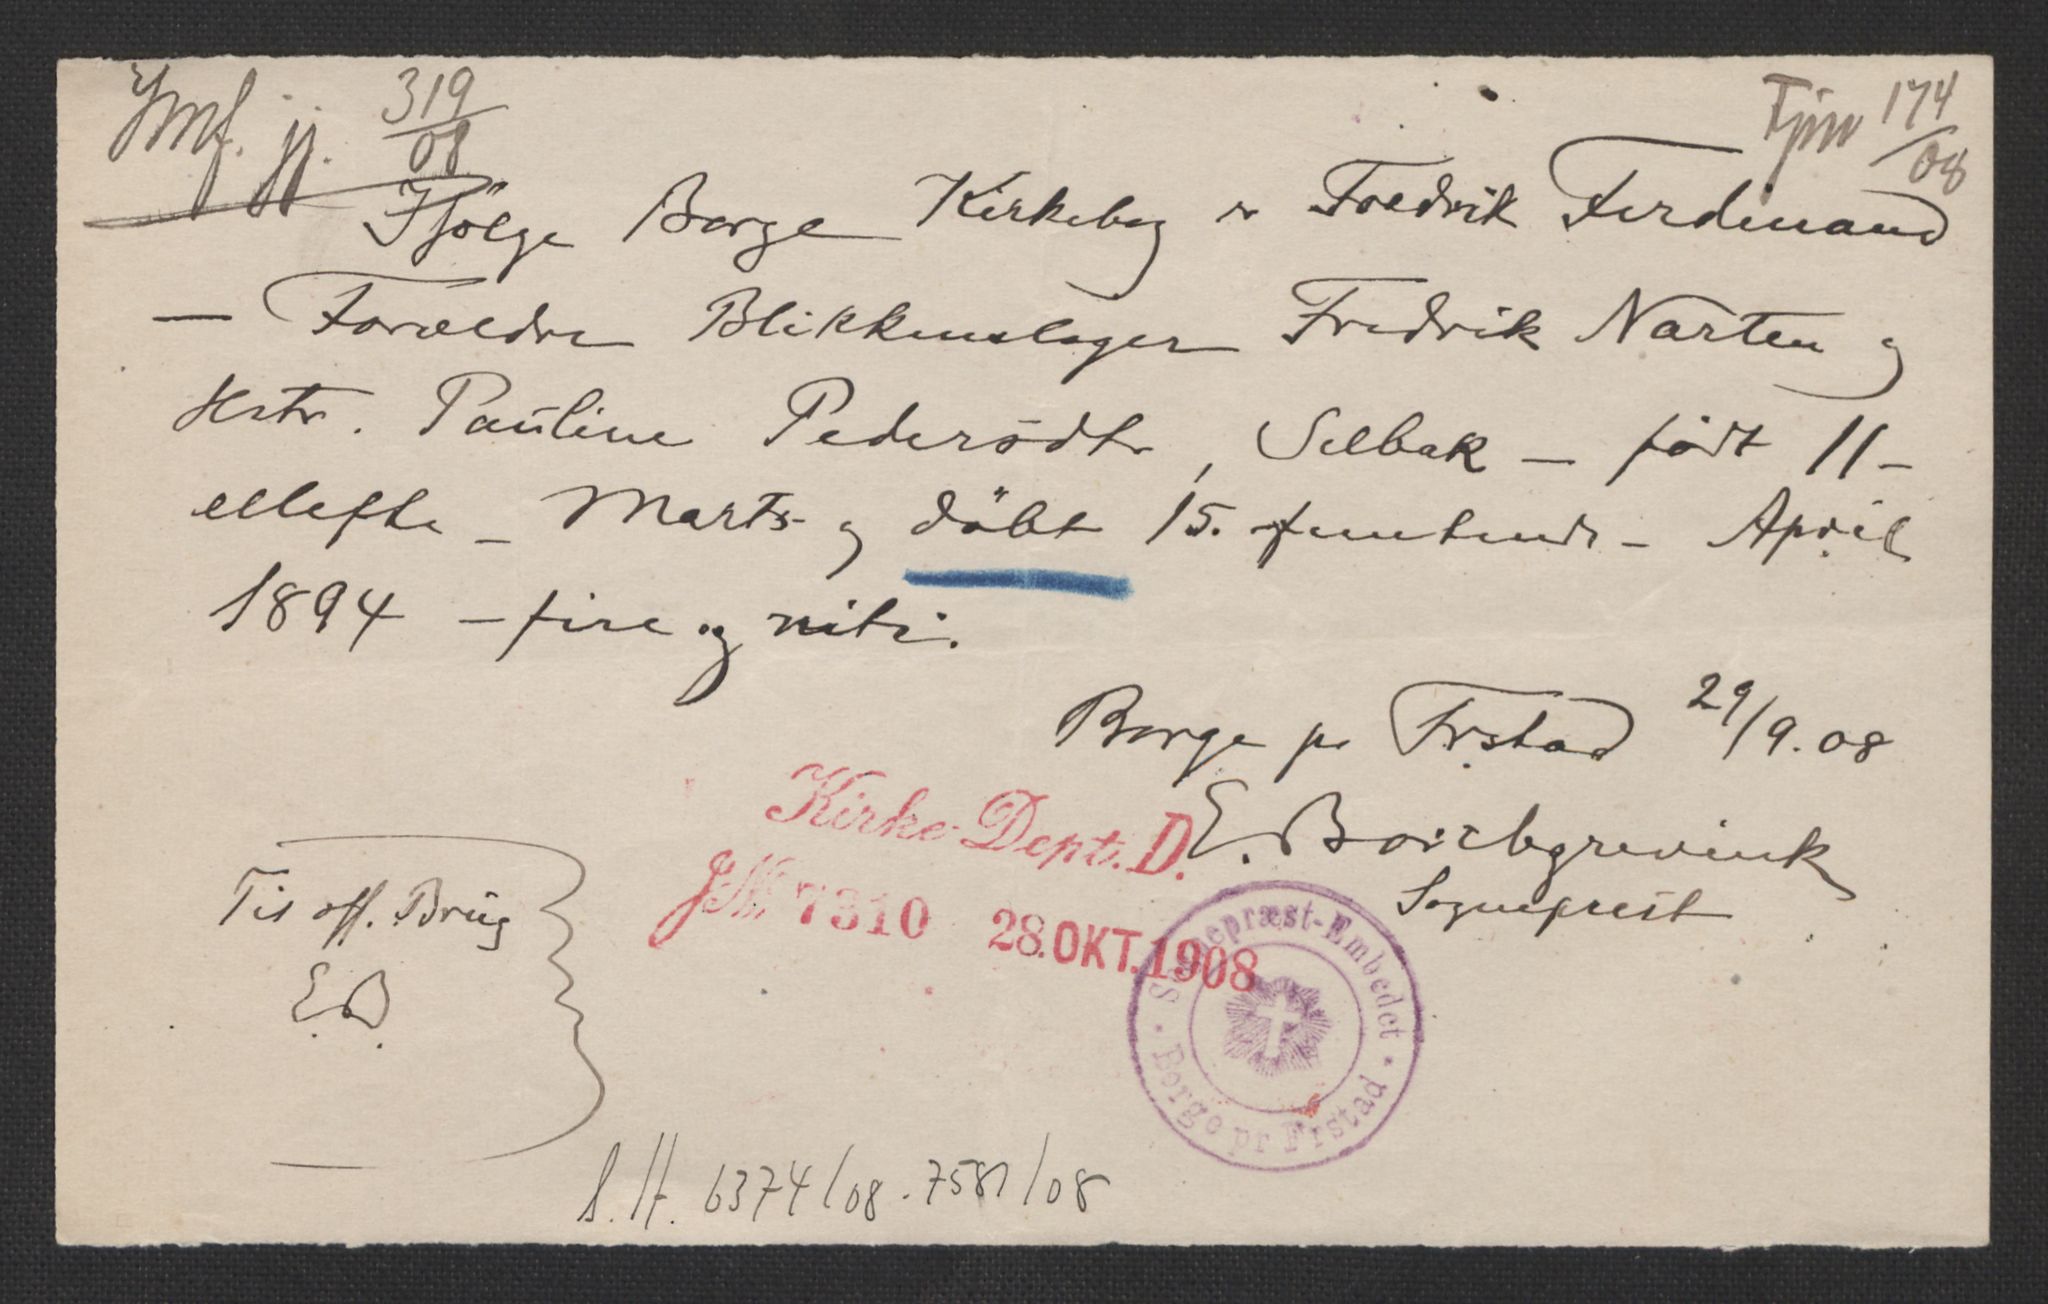 319
08
174
08
Ifölge Borge Kirkebog er Fredrik Ferdinand
— Forældre Blikkenslager Fredrik Narten og
Hstr. Pauline Pedersdtr, Selbak — født 11 —
ellefte — Marts og döbt 15. femtende — April
1894 — fire og niti.
Borge pr Frstad 29/9.08
E. Borchgrevink
Sogneprest
Til off. Brug
E.B.
Kirke-Dept. D.
J.No. 7310 28.OKT.1908
Sognepræst-Embedet
Borge pr Frstad
6374/08. 7581/08